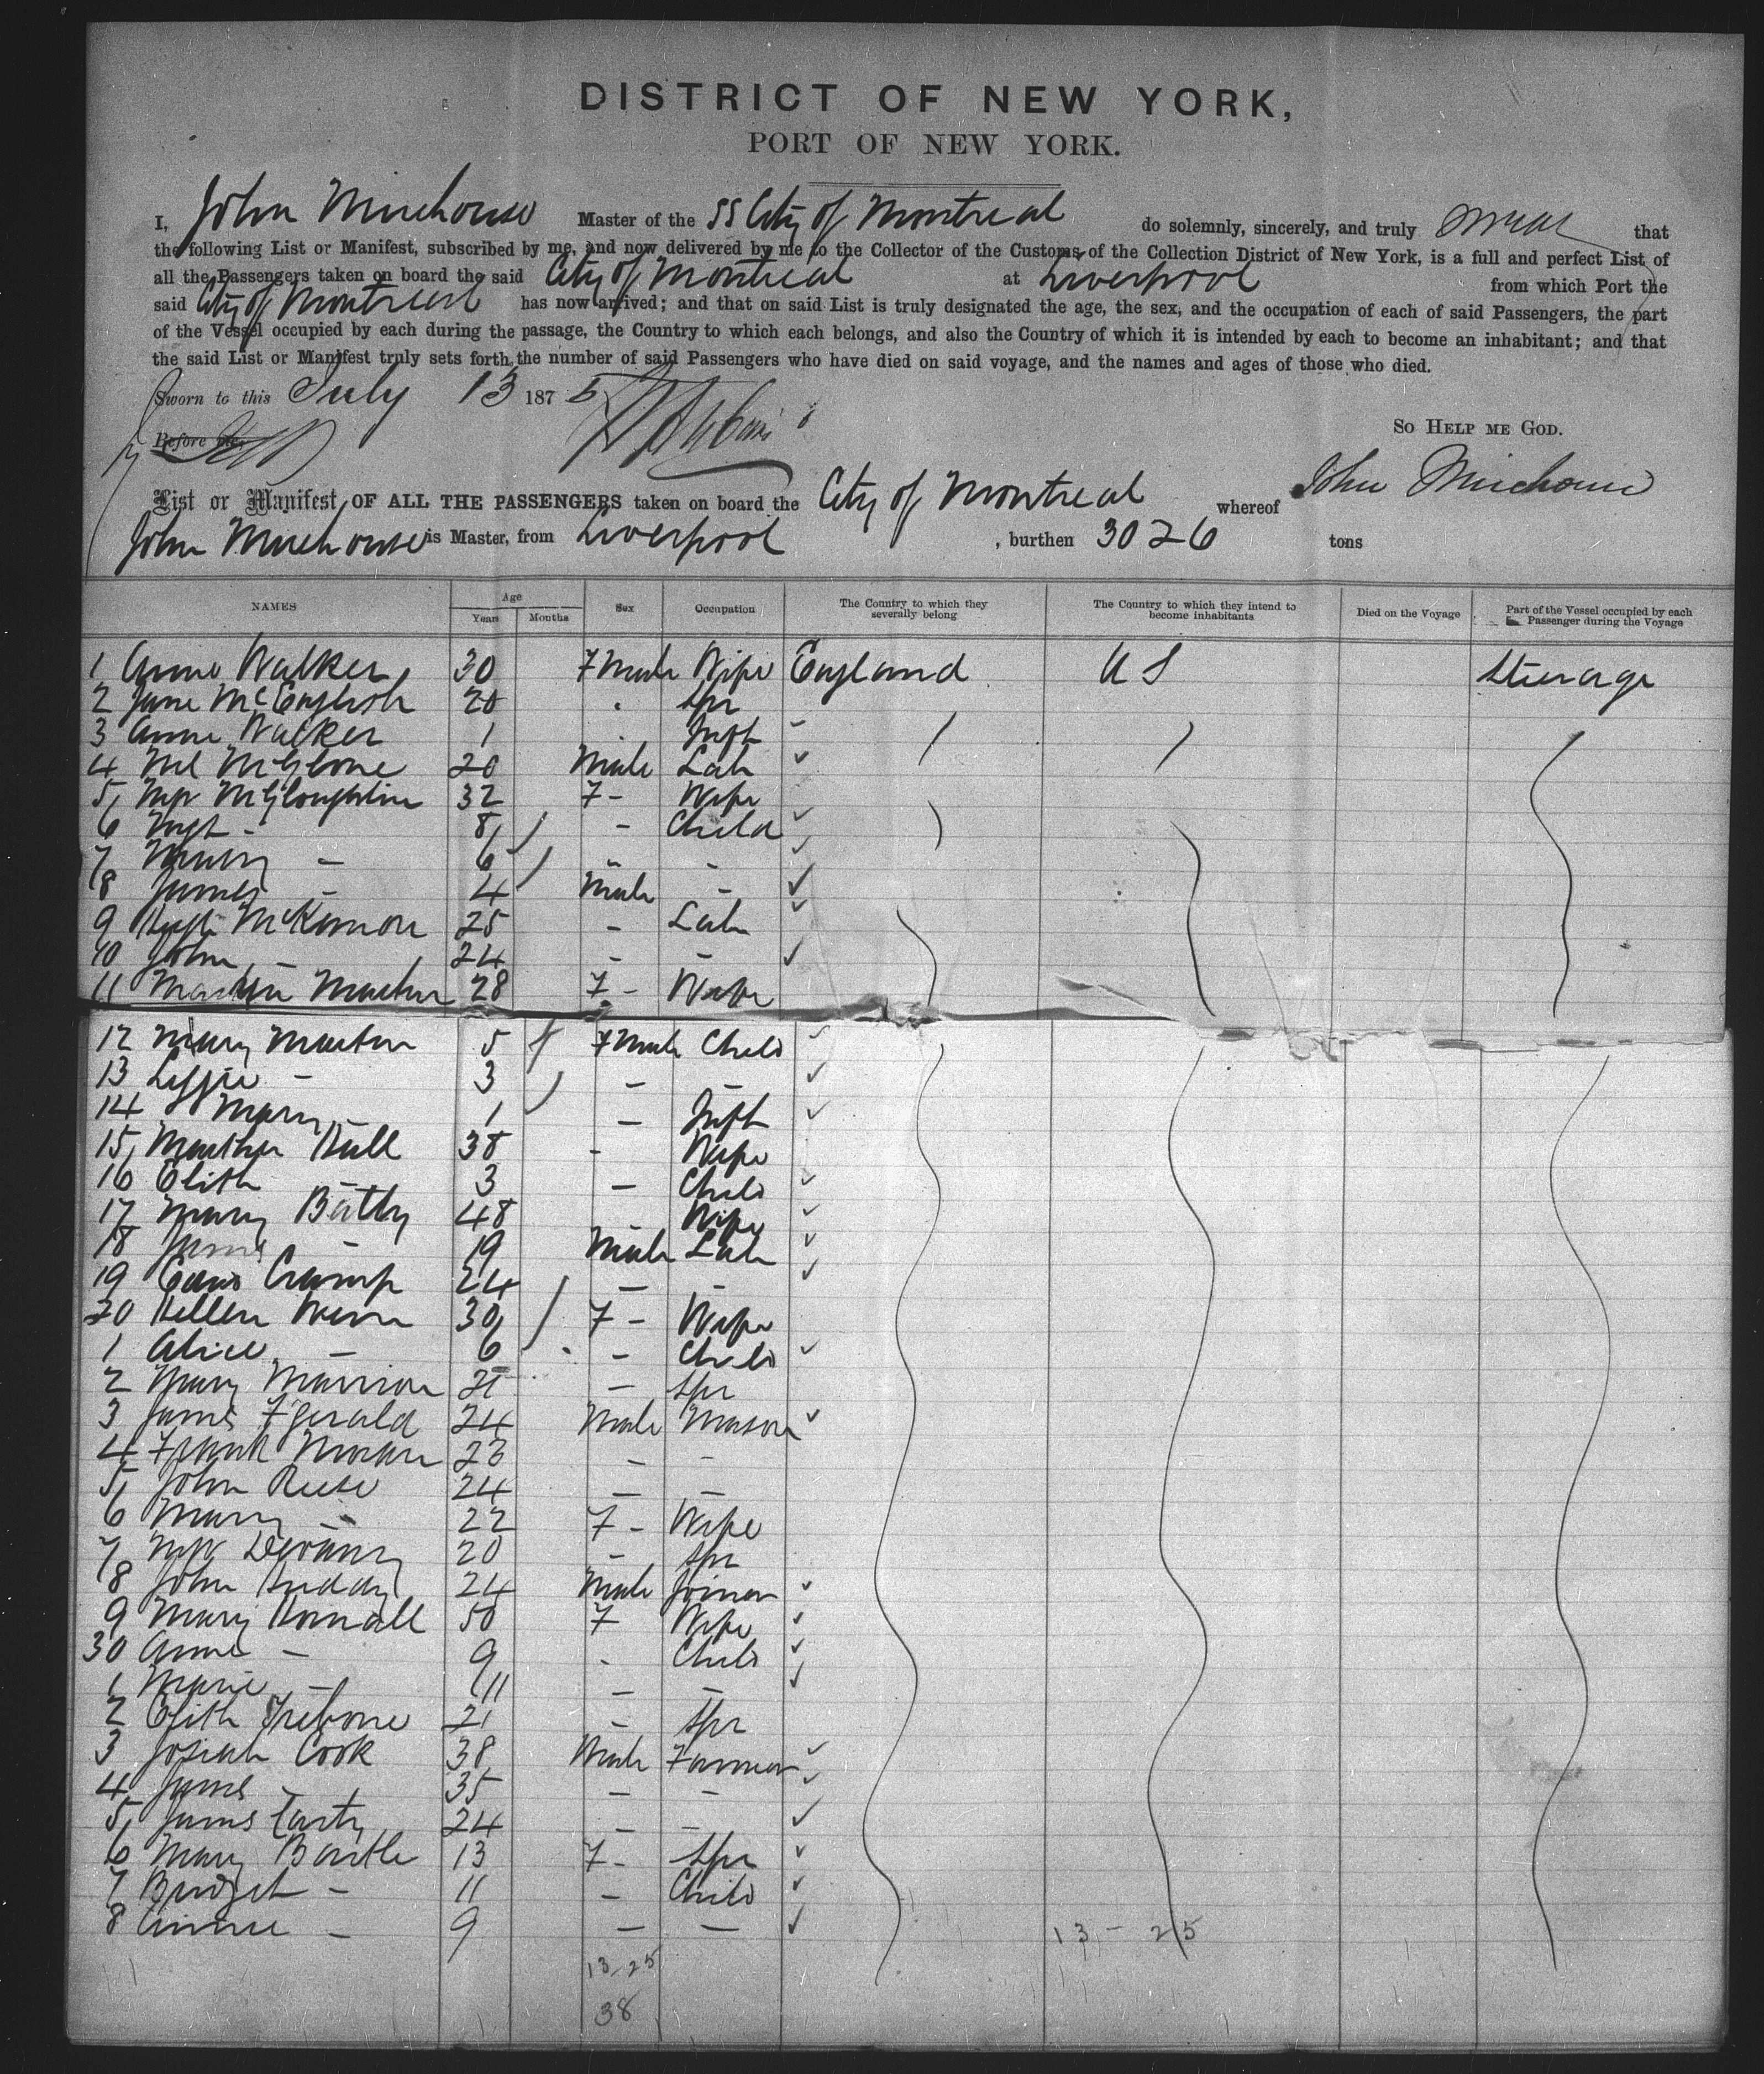 DISTRICT OF NEW YORK,
PORT OF NEW YORK.
I, John Mirehouse Master of the SS City of Montreal do solemnly, sincerely, and truly swear that
the following List or Manifest, subscribed by me, and now delivered by me to the Collector of the Customs of the Collection District of New York, is a full and perfect List of
all the Passengers taken on board the said City of Montreal at Liverpool from which Port the
said City of Montreal has now arrived; and that on said List is truly designated the age, the sex, and the occupation of each of said Passengers, the part
of the Vessel occupied by each during the passage, the Country to which each belongs, and also the Country of which it is intended by each to become an inhabitant; and that
the said List or Manifest truly sets forth the number of said Passengers who have died on said voyage, and the names and ages of those who died.
Sworn to this July 13 1875
So Help me God.
Before me,
John Mirehouse
List or Manifest OF ALL THE PASSENGERS taken on board the City of Montreal whereof
John Mirehouse is Master, from Liverpool , burthen 3026 tons
NAMES Age Years Months Sex Occupation The Country to which they severally belong The Country to which they intend to become inhabitants Died on the Voyage Part of the Vessel occupied by each Passenger during the Voyage
1 Anne Walker 30 Fmale Wife England U S Steerage
2 Jane McEnglish 20 . Spr
3 Anne Walker 1 . Inft
4 McGlone 20 Male Lab
5 McGloughlin 32 F - Wife
6 Mgt - 8 - Child
7 6 - -
8 James - 4 Male -
9 Hugh McKinnon 25 - Lab
10 John - 24 - -
11 Martha 28 F - Wife
12 Mary Marten 5 Fmale Child
13 - 3 - -
14 Mary - 1 - Inft
15 Martha Hull 38 - Wife
16 - 3 - Child
17 Mary Batty 48 Wife
18 James - 19 Male Lab
19 Cramp 24 - -
20 Hellen 30 F - Wife
1 Alice - 6 - Child
2 Mary Marrion 21 - Spr
3 James Fgerald 24 Male Mason
4 Frank Moran 23 - -
5 John Reese 24 - -
6 Mary - 22 F - Wife
7 Devanny 20 - Spr
8 John 24 Male Joiner
9 Mary 50 F Wife
30 Anne - 9 - Child
1 Marie - 11 - -
2 21 - Spr
3 Josiah Cook 38 Male Farmer
4 James - 35 - -
5 James Carty 24 - -
6 Mary Bartle 13 F - Spr
7 Bridget - 11 - Child
8 Annie - 9 - -
13 - 25
13-25
38